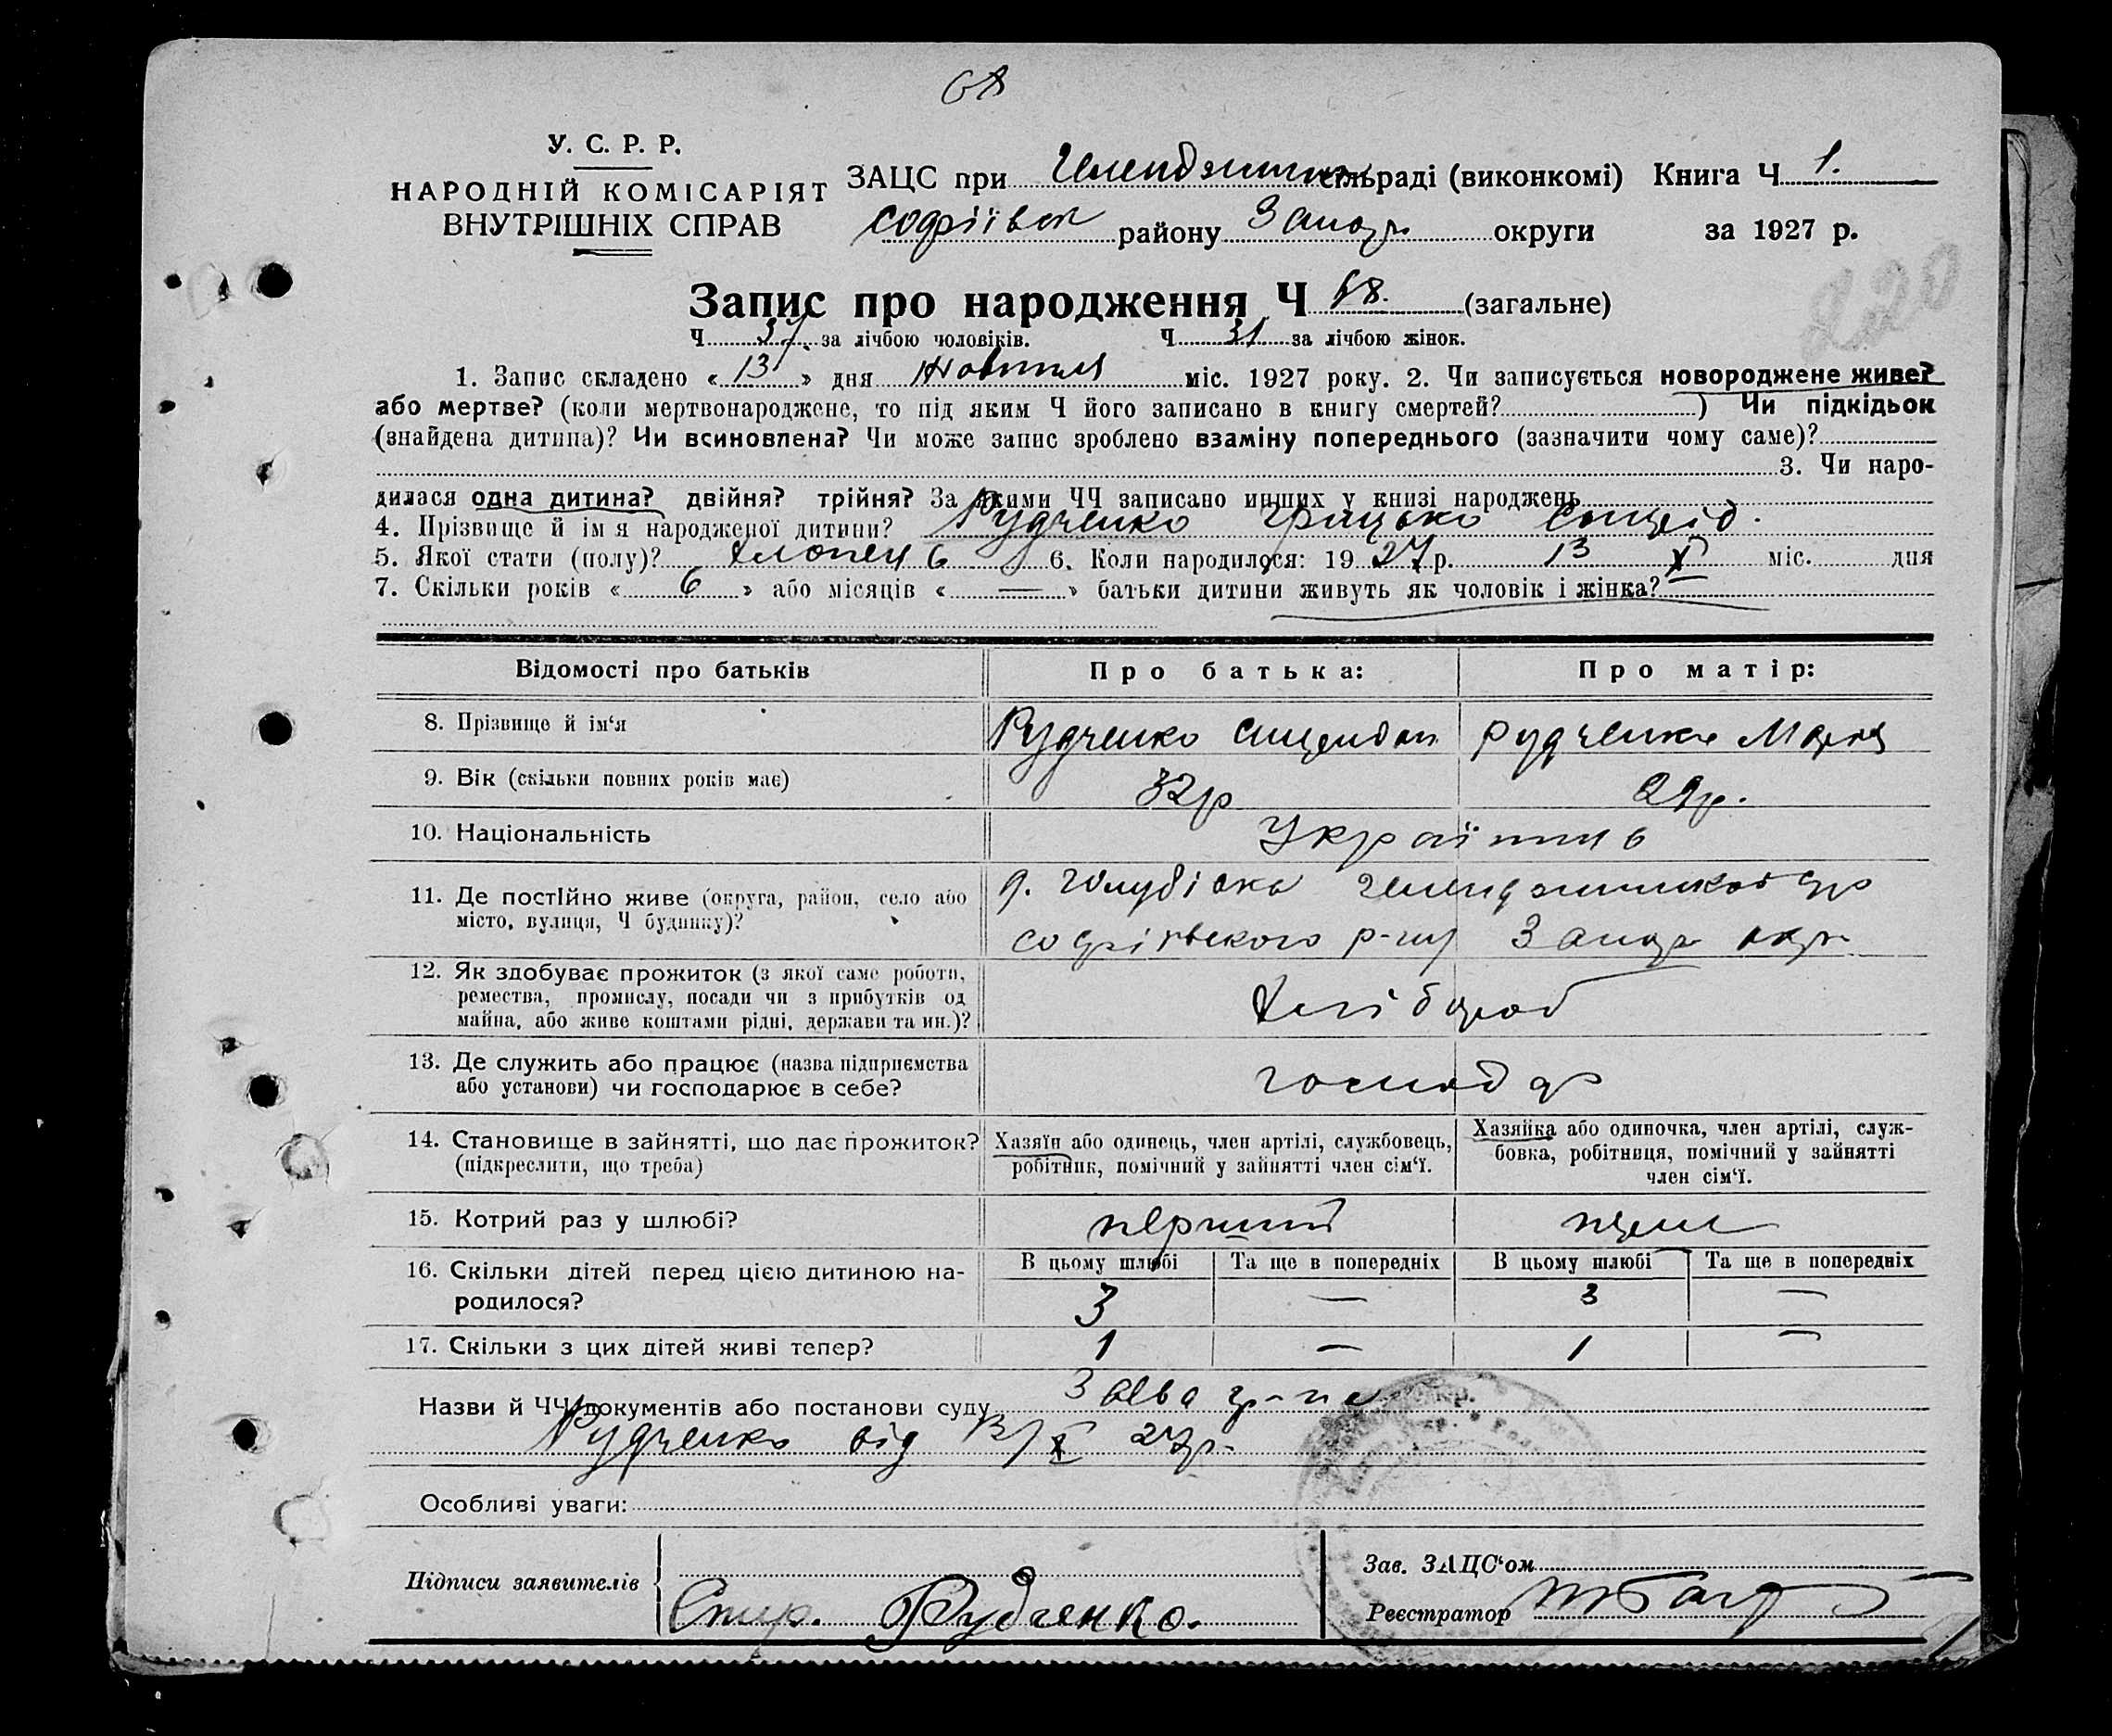 68
У. С. Р. Р.
НАРОДНІЙ КОМІСАРІЯТ
ВНУТРІШНІХ СПРАВ
ЗАЦС при сільраді (виконкомі) Книга Ч 1.
Софіївск району Запор. округи за 1927 р.
220
Запис про народження Ч 68. (загальне)
Ч 37 за лічбою чоловіків. Ч 31 за лічбою жінок.
1. Запис складено « 13 » дня Жовтня міс. 1927 року. 2. Чи записується новороджене живе?
або мертве? (коли мертвонароджене, то під яким Ч його записано в книгу смертей? ) Чи підкідьок
(знайдена дитина)? Чи всиновлена? Чи може запис зроблено взаміну попереднього (зазначити чому саме)?
3. Чи наро-
дилася одна дитина? двійня? трійня? За якими ЧЧ записано инших у книзі народжень
4. Прізвище й ім я народженої дитини? Рудченко Грицько
5. Якої стати (полу)? хлопець 6. Коли народилося: 19 27 р. 13 X міс. дня
7. Скільки років « 6 » або місяців « — » батьки дитини живуть як чоловік і жінка?
Відомості про батьків Про батька: Про матір:
8. Прізвище й ім‘я Рудченко Рудченко Марія
9. Вік (скільки повних років має) 32р 29р.
10. Національність Українць
11. Де постійно живе (округа, район, село або Голубівка
місто, вулиця, Ч будинку)? Софіївського р-ну Запор окр.
12. Як здобуває прожиток (з якої саме роботи,
ремества, промислу, посади чи з прибутків од Хлібороб
майна, або живе коштами рідні, держави та ин.)?
13. Де служить або працює (назва підприємства
або установи) чи господарює в себе? господар
14. Становище в зайнятті, що дає прожиток? Хазяїн або одинець, член артілі, службовець, Хазяйка або одиночка, член артілі, служ-
(підкреслити, що треба) робітник, помічний у зайнятті член сім‘ї. бовка, робітниця, помічний у зайнятті
член сім‘ї.
15. Котрий раз у шлюбі? перший перш
16. Скільки дітей перед цією дитиною на- В цьому шлюбі Та ще в попередніх В цьому шлюбі Та ще в попередніх
родилося? 3 — 3 —
17. Скільки з цих дітей живі тепер? 1 — 1 —
Назви й ЧЧ документів або постанови суду Заява гр-на
Рудченко від 13/X 27р.
Особливі уваги:
Зав. ЗАЦС‘ом
Підписи заявителів Рудченко.
Реєстратор